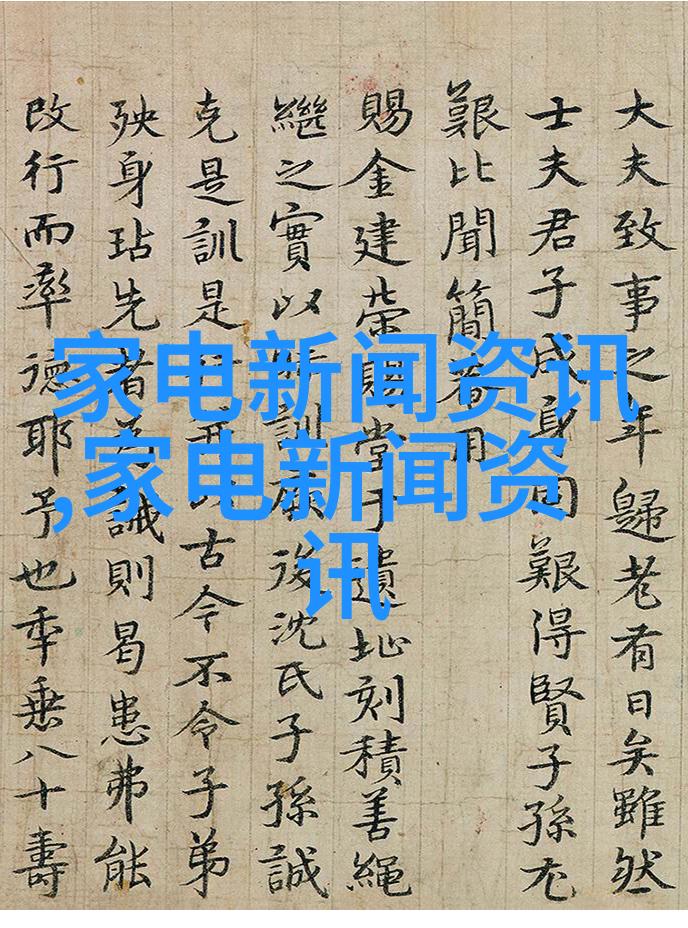 大夫致事之年歸老有日矣雖然
士夫君子成身固艱得賢子孫尤
艱比聞簡用
賜金建榮賜堂于遺址刻積善繩
繼之實以訓後沈氏子孫誠
克是訓是古今不令子弟
殃身玷先者為誡則曷患弗能
改行而率德耶予也年垂八十壽
家电新闻资讯
,家电新闻资
讯